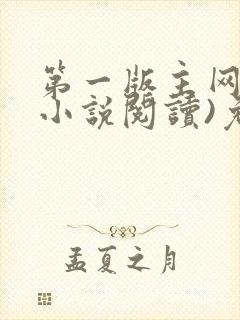 第一版主网
小説閱讀)免
孟夏之月